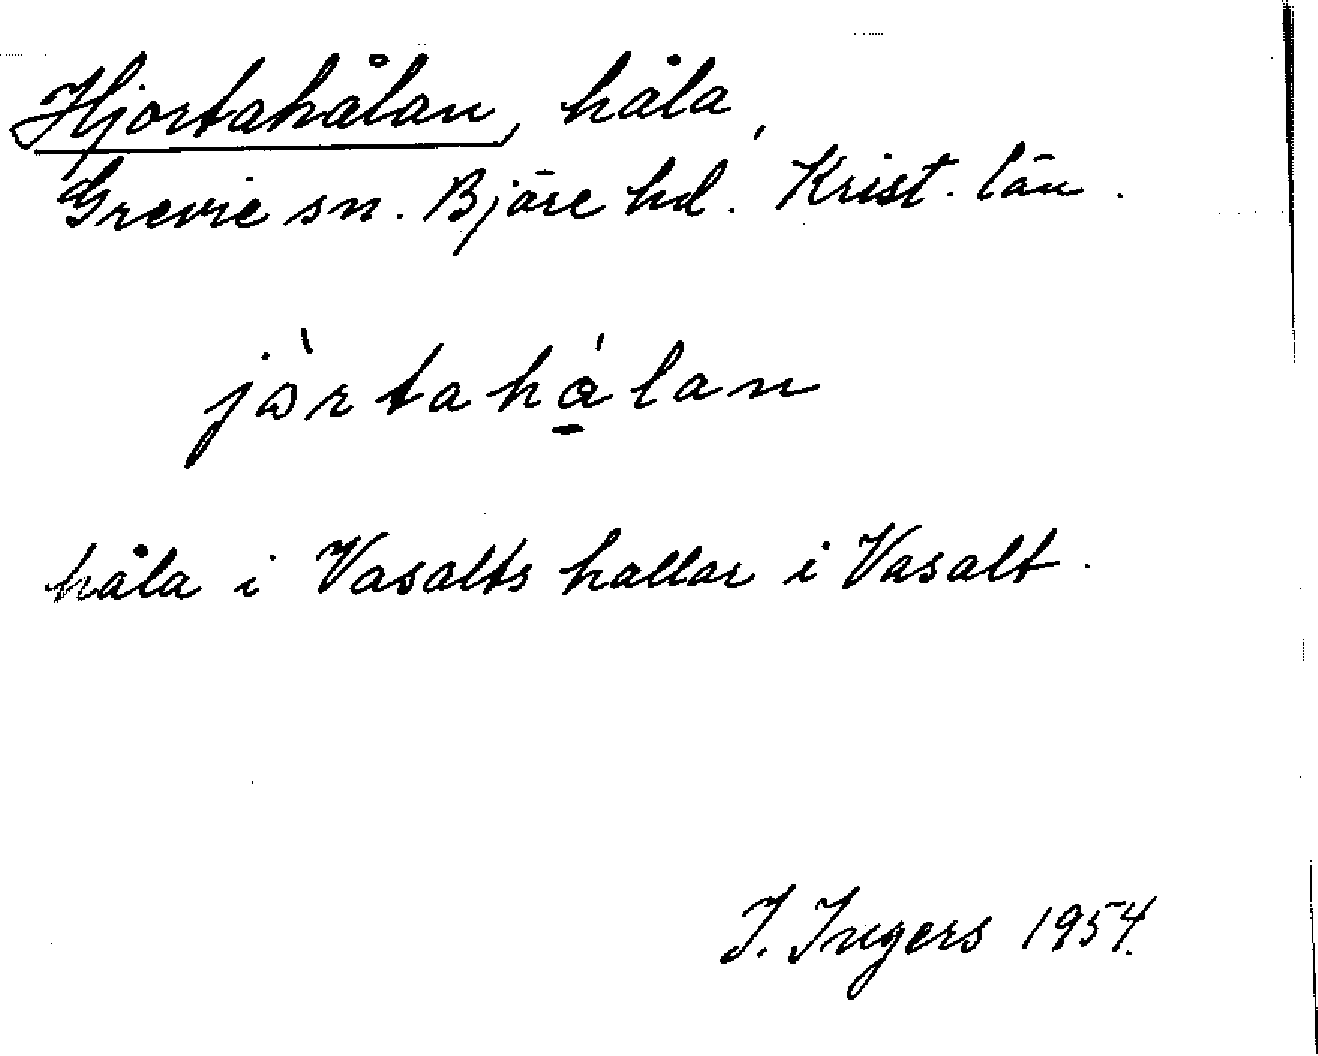 Hjortahålan, håla,
Grevie sn. Bjäre hd. Krist. län.
jòrtahá̱lan
håla i Vasalts hallar i Vasalt.
I. Ingers 1954.